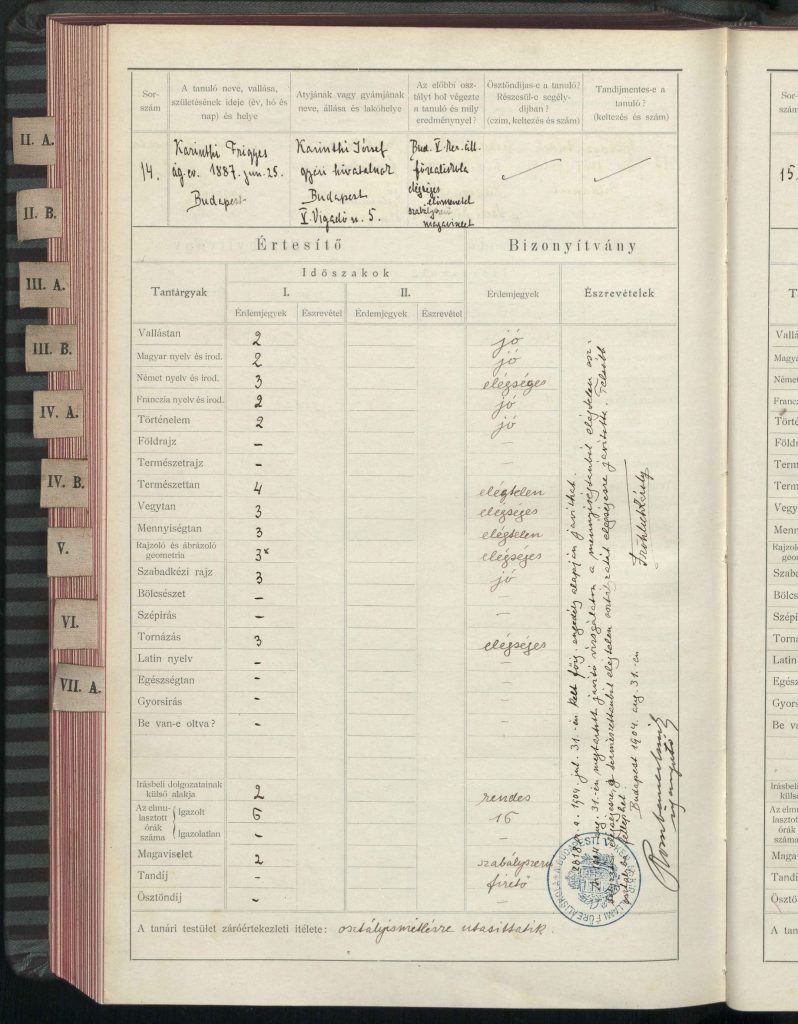 II. A.
II. B.
III. A.
III. B.
IV. A.
IV. B.
V.
VI.
VII. A.
Sor-
szám
A tanuló neve, vallása,
születésének ideje (év, hó és
nap) és helye
Atyjának vagy gyámjának
neve, állása és lakóhelye
Az előbbi osz-
tályt hol végezte
a tanuló és mily
eredménynyel?
Ösztöndíjas-e a tanuló?
Részesül-e segély-
díjban?
(czím, keltezés és szám)
Tandíjmentes-e a
tanuló?
(keltezés és szám)
14.
Karinthi Frigyes
ág. ev. 1887. jun. 25.
Budapest
Karinthi József
gyári hivatalnok
Budapest
V. Vigadó u. 5.
Bud. V. ker. áll.
főreáliskola
elégséges
előmenetel
szabályszerű
magaviselet
Értesítő
Bizonyítvány
Tantárgyak
Időszakok
I.
II.
Érdemjegyek
Észrevétel
Érdemjegyek
Észrevétel
Érdemjegyek
Észrevételek
Vallástan 2 jó
Magyar nyelv és irod. 2 jó
Német nyelv és irod. 3 elégséges
Franczia nyelv és irod. 2 jó
Történelem 2 jó
Földrajz – –
Természetrajz – –
Természettan 4 elégtelen
Vegytan 3 elégséges
Mennyiségtan 3 elégtelen
Rajzoló és ábrázoló
geometria 3 elégséges
Szabadkézi rajz 3 jó
Bölcsészet – –
Szépírás – –
Tornázás 3 elégséges
Latin nyelv – –
Egészségtan – –
Gyorsírás – –
Be van-e oltva? – –
Irásbeli dolgozatainak
külső alakja 2 rendes
Az elmu-
lasztott
órák
száma
Igazolt 6 16
Igazolatlan – –
Magaviselet 2 szabályszerű
Tandíj – fizető
Ösztöndíj – –
a. 1904. jul. 31.-én kelt főig. engedély alapján javíthat.
aug. 31.-én megtartott javító vizsgálaton a mennyiségtanból elégtelen osz-
elégségesre, a természettanból elégtelen osztályzatát elégségesre javította. Felsőbb
osztályba felléphet.
Budapest 1904. aug. 31.-én
A tanári testület záróértekezleti ítélete: osztályismétlésre utasíttatik.
15.